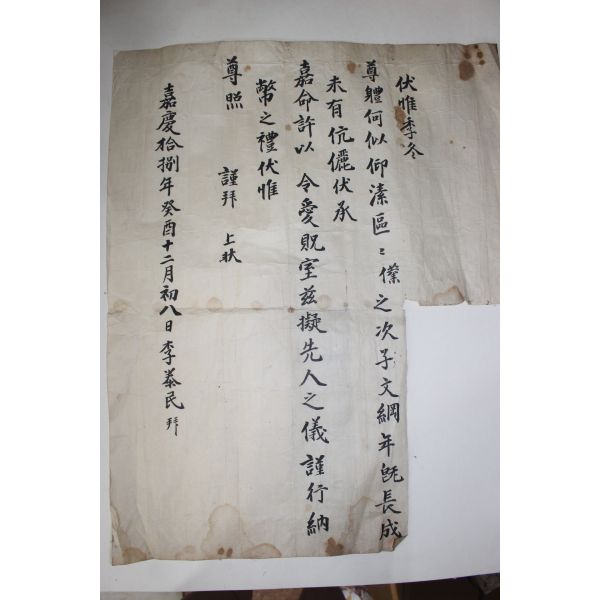 伏惟季冬
尊軆何似仰溸區〻僕之次子文綱年旣長成
未有伉儷伏承
嘉命許以 令愛貺室玆擬先人之儀謹行納
幣之禮伏惟
尊照 謹拜 上狀
嘉慶拾捌年癸酉十二月初八日李泰民拜